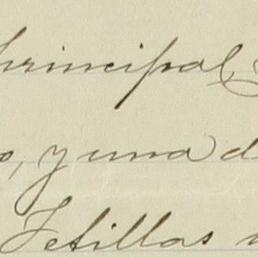 Principal,
o, y una d
Tetillas